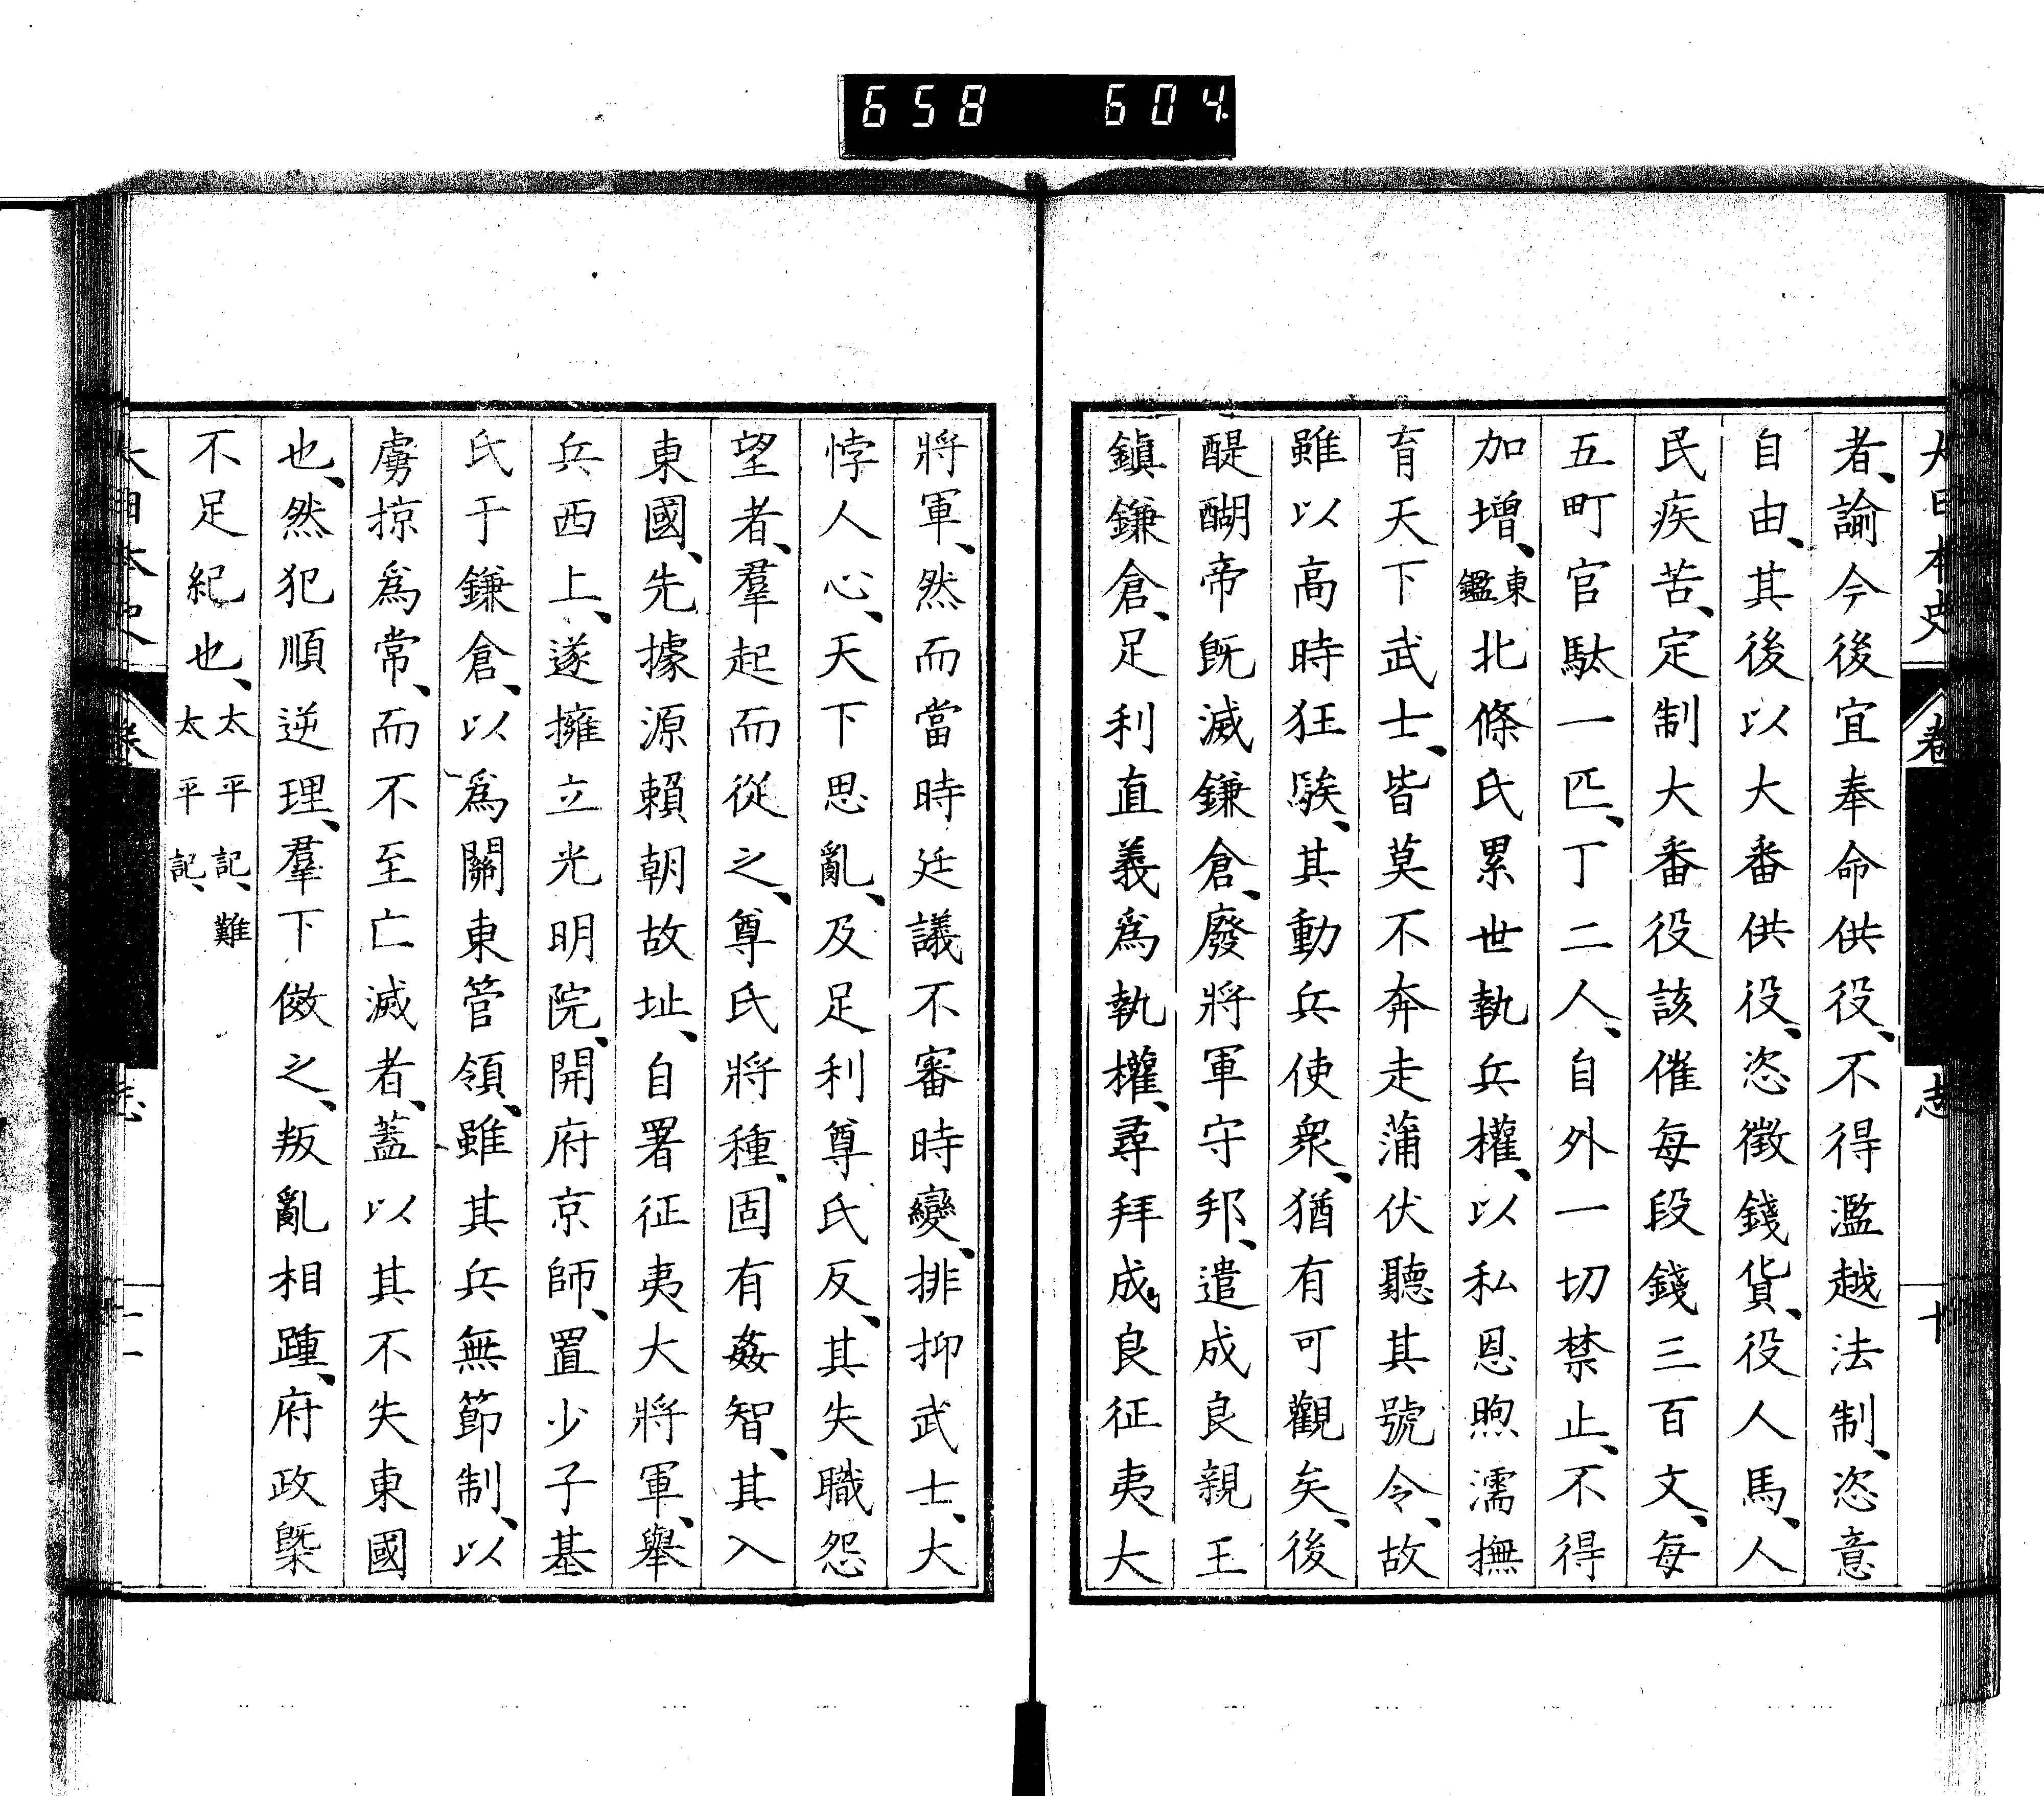 658 604
大日本史 卷 志 十
者、諭今後宜奉命供役、不得濫越法制、恣意
自由、其後以大番供役、恣徵錢貨、役人人馬、人
民疾苦、定制大番役該催每段錢三百文、每
五町官駄一匹、丁二人、自外一切禁止、不得
加增、東鑑北條氏累世執兵權、以私恩煦濡撫
育天下武士、皆莫不奔走蒲伏聽其號令、故
雖以高時狂騃、其動兵使衆、猶有可觀矣、後
醍醐帝旣滅鎌倉、廢將軍守邦、遣成良親王
鎭鎌倉、足利直義爲執權、尋拜成良征夷大
將軍、然而當時廷議不審時變、排抑武士、大
悖人心、天下思亂、及足利尊氏反、其失職怨
望者、羣起而從之、尊氏將種、固有姦智、其入
東國、先據源賴朝故址、自署征夷大將軍、舉
兵西上、遂擁立光明院、開府京師、置少子基
氏于鎌倉、以爲關東管領、雖其兵無節制、以
虜掠爲常、而不至亡滅者、蓋以其不失東國
也、然犯順逆理、羣下傚之、叛亂相踵、府政槩
不足紀也、太平記、難
太平記、
大日本史 卷 志